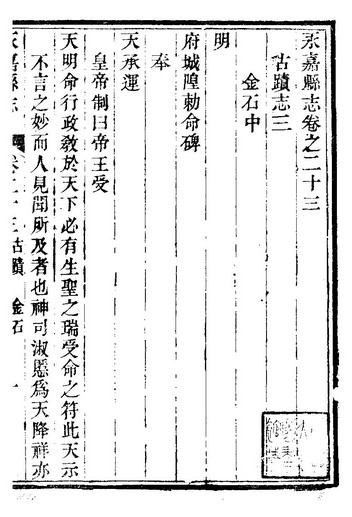 永嘉縣志卷之二十三
古蹟志三
金石中
明
府城隍勅命碑
奉
天承運
皇帝制曰帝王受
天明命行政教於天下必有生聖之瑞受命之符此天示
不言之妙而人見聞所及者也神司淑慝為天降祥亦
永嘉縣志
卷二十三古蹟 金石 一